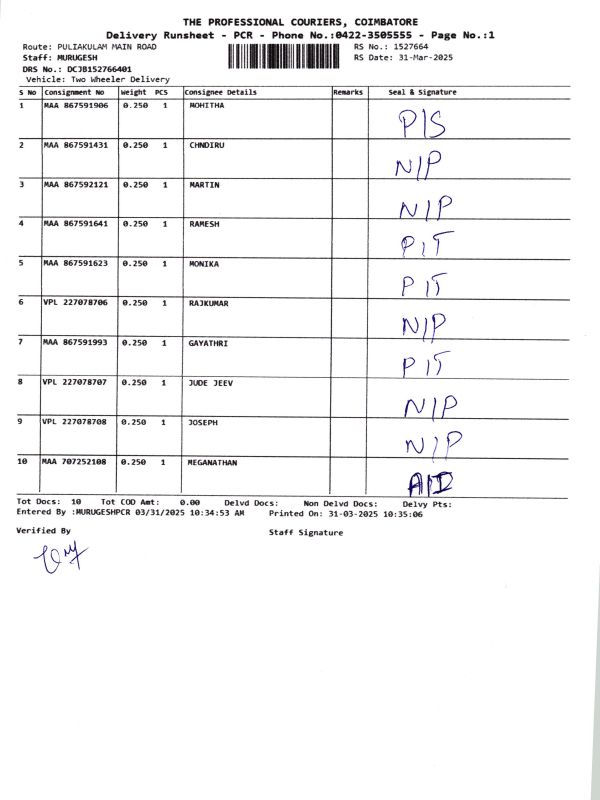 THE PROFESSIONAL COURIERS, COIMBATORE
Delivery Runsheet - PCR - Phone No.:0422-3505555 - Page No.:1
Route: PULIAKULAM MAIN ROAD RS No.: 1527664
Staff: MURUGESH RS Date: 31-Mar-2025
DRS No.: DCJB152766401
Vehicle: Two Wheeler Delivery
S No Consignment No Weight PCS Consignee Details Remarks Seal & Signature
1 MAA 867591906 0.250 1 MOHITHA P/S
2 MAA 867591431 0.250 1 CHNDIRU N/P
3 MAA 867592121 0.250 1 MARTIN N/P
4 MAA 867591641 0.250 1 RAMESH P IT
5 MAA 867591623 0.250 1 MONIKA P IT
6 VPL 227078706 0.250 1 RAJKUMAR N/P
7 MAA 867591993 0.250 1 GAYATHRI P IT
8 VPL 227078707 0.250 1 JUDE JEEV N/P
9 VPL 227078708 0.250 1 JOSEPH N/P
10 MAA 707252108 0.250 1 MEGANATHAN A/D
Tot Docs: 10 Tot COD Amt: 0.00 Delvd Docs: Non Delvd Docs: Delvy Pts:
Entered By :MURUGESHPCR 03/31/2025 10:34:53 AM Printed On: 31-03-2025 10:35:06
Verified By Staff Signature